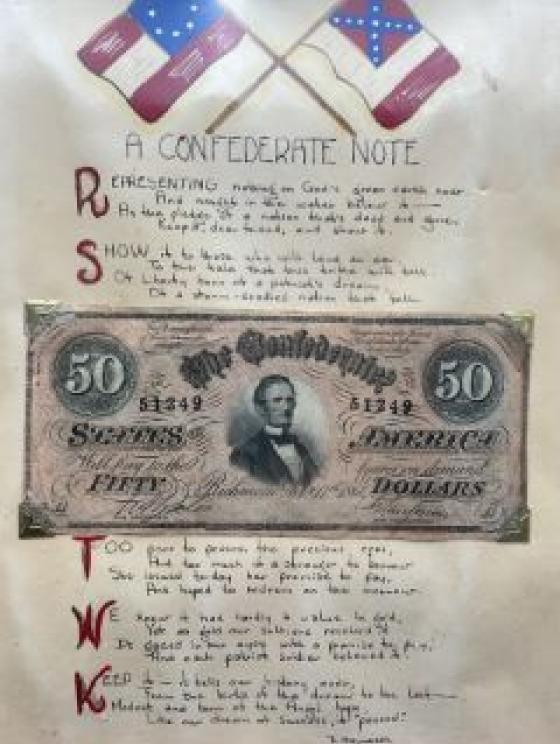 A CONFEDERATE NOTE
REPRESENTING nothing on God's green earth now
And naught in the water below it —
As the pledge of a nation that's dead and gone,
Keep it, dear friend, and show it.
SHOW it to those who will lend an ear
To the tale that this trifle will tell
Of Liberty born of a patriot's dream,
Of a storm-cradled nation that fell.
50
The Confederate
50
51249
51249
STATES
AMERICA
Will pay to the
on demand
FIFTY
Richmond
DOLLARS
TOO poor to possess the precious ores,
And too much of a stranger to borrow
She issued to-day her promise to pay,
And hoped to redeem on the morrow.
WE knew it had hardly a value in gold,
Yet as gold our soldiers received it
It gazed in our eyes with a promise to pay,
And each patriot soldier believed it.
KEEP it — it tells our history over,
From the birth of the dream to the last—
Modest and born of the Angel hope
Like our dream of success, it "passed."